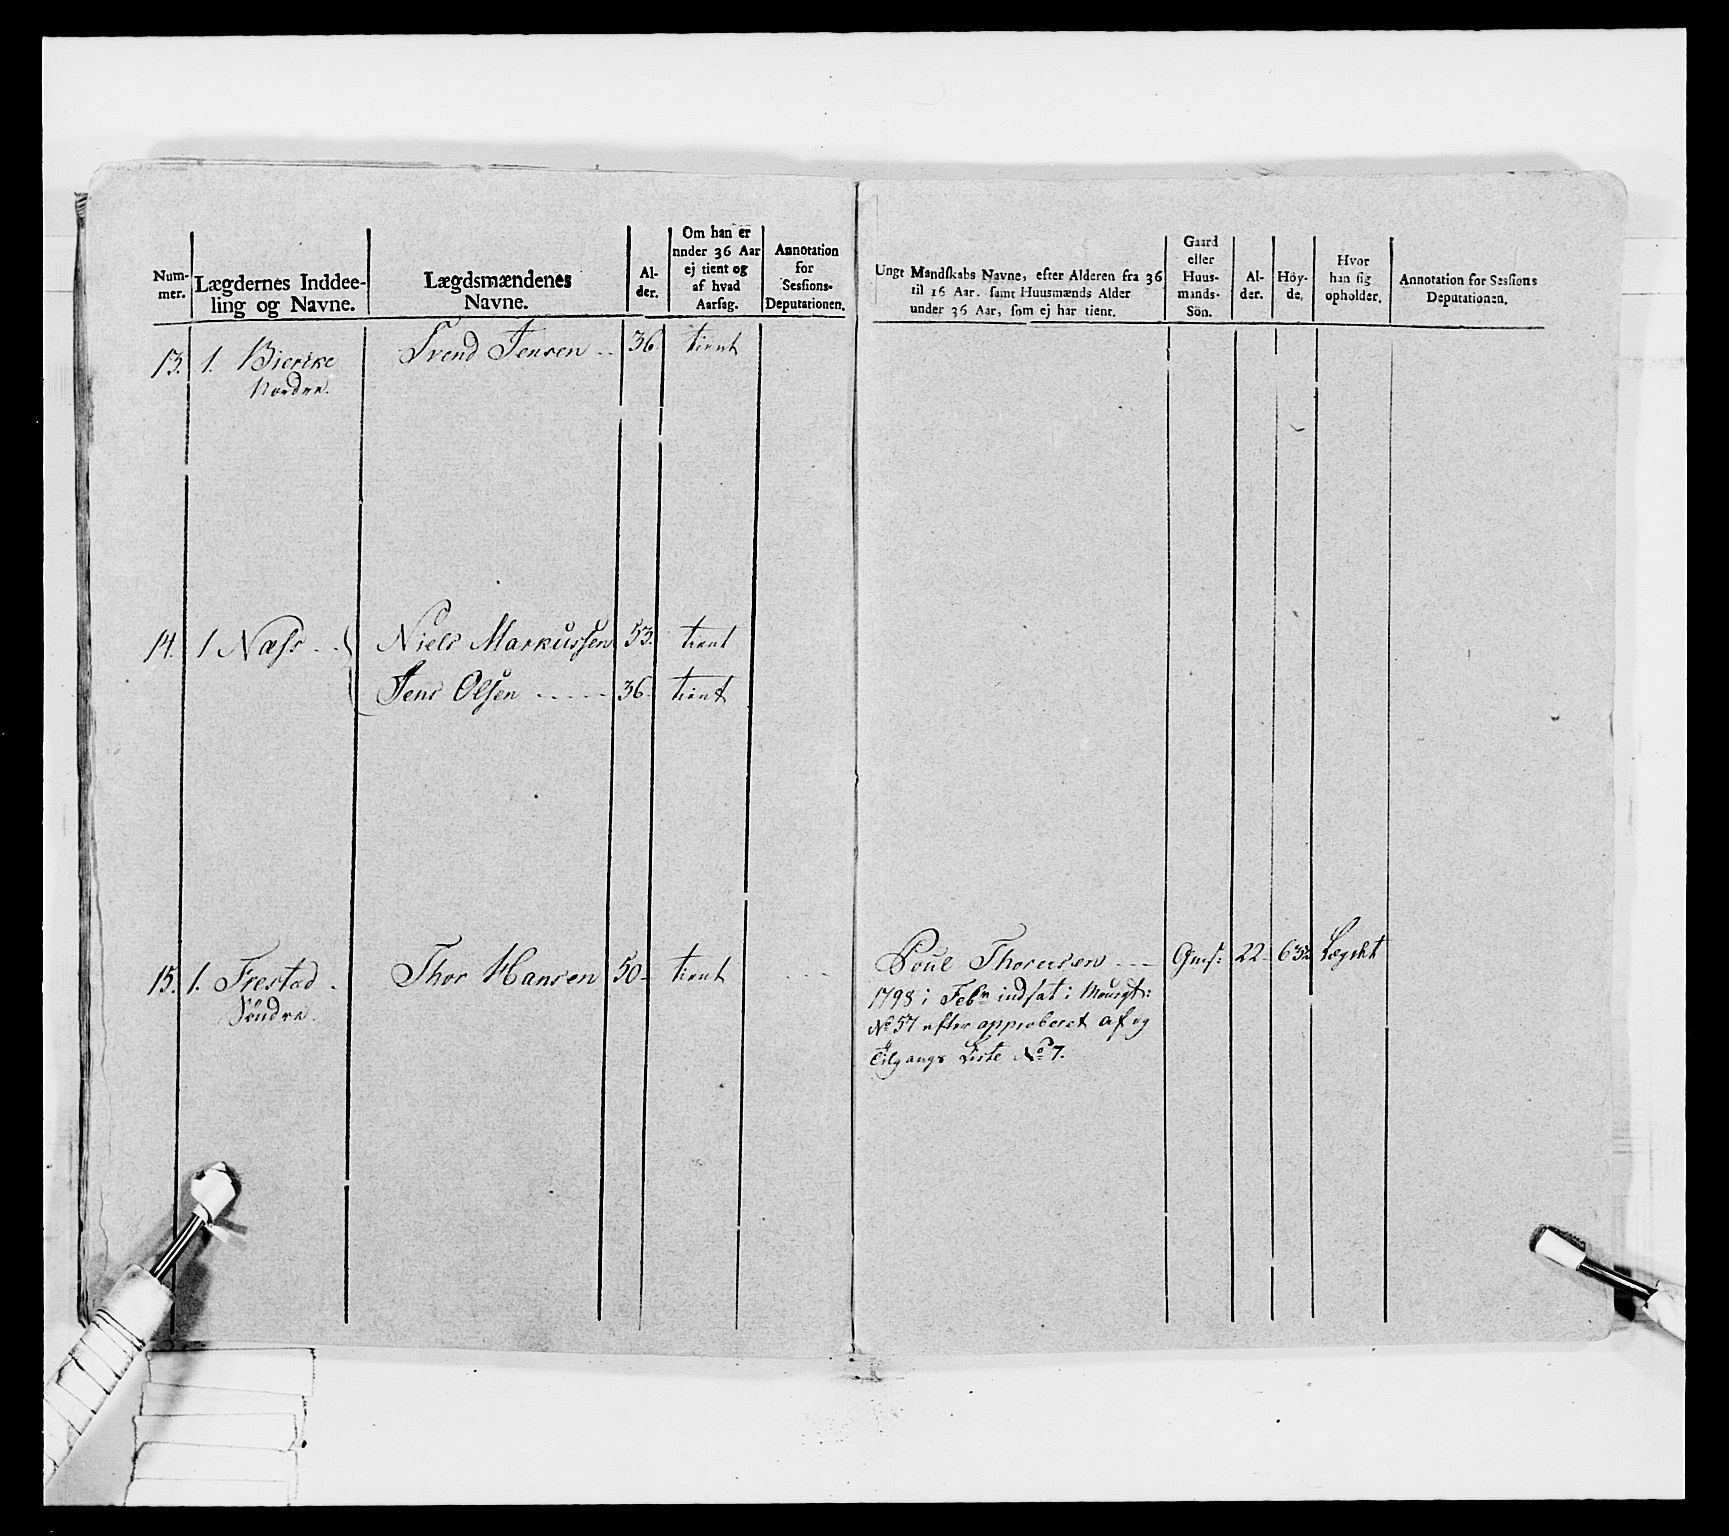 Num-
mer.
Lægdernes Inddee-
ling og Navne.
Lægdsmændenes
Navne.
Al-
der.
Om han er
under 36 Aar
ej tient og
af hvad
Aarsag.
Annotation
for
Sessions-
Deputationen.
Ungt Mandskabs Navne, efter Alderen fra 36
til 16 Aar. samt Huusmænds Alder
under 36 Aar, som ej har tient.
Gaard
eller
Huus-
mands-
Sön.
Al-
der.
Höy-
de.
Hvor
han sig
opholder.
Annotation for Sessions
Deputationen.
13. 1. Bierke Svend Jensen .. 36 tient
Nordre.
14. 1 Næss .. Niels Markussen 53. tient
Jens Olsen ..... 36. tient
15. 1. Frestad . Thor Hansen 50- tient ....
Söndre.
Poul Thorersen ... 22- 63½ Lægdet
1798 i Febr indsat i
No 57 efter approberet af og
tilgangs Liste No 7.